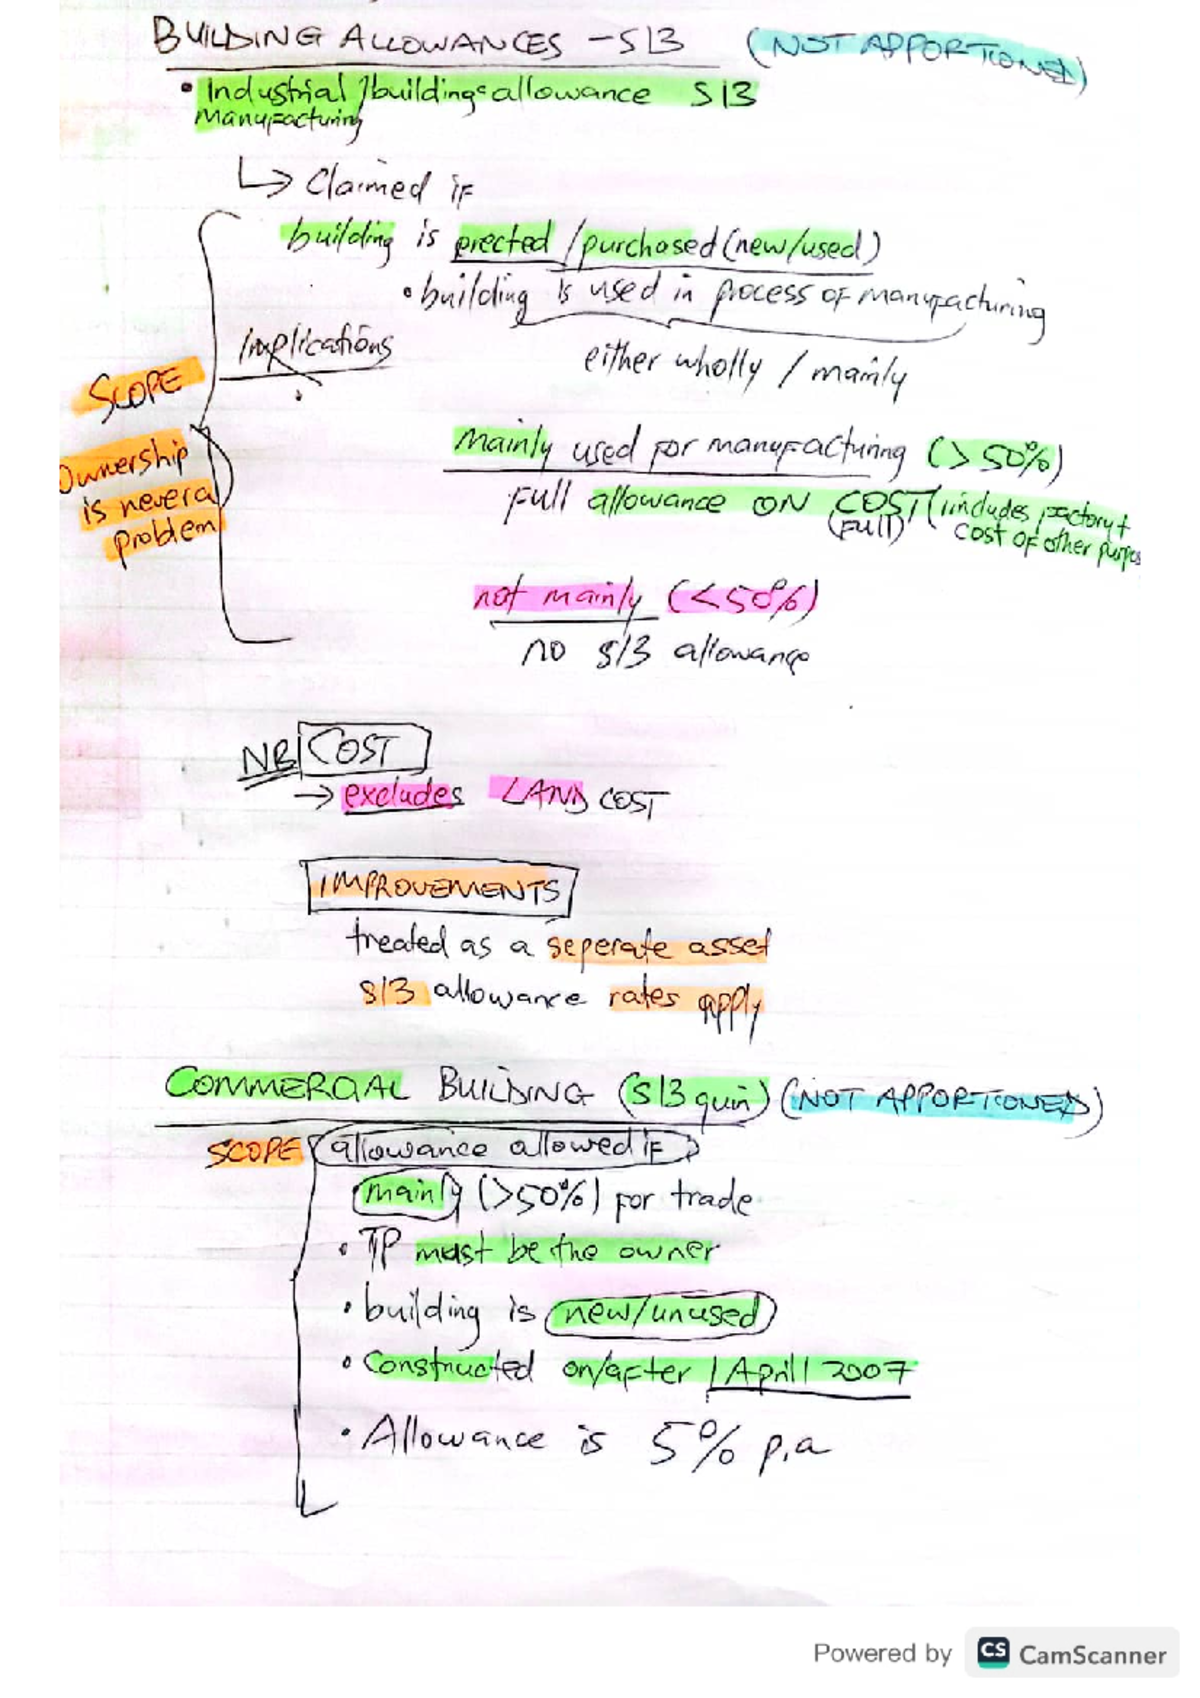 BUILDING ALLOWANCES - S13 (NOT APPORTIONED)
• Industrial /buildings allowance S13
Manufacturing
↳ Claimed if
building is erected / purchased (new/used)
• building is used in process of manufacturing
Implications
either wholly / mainly
SCOPE
Ownership is never a problem
Mainly used for manufacturing (> 50%)
Full allowance ON COST (includes factory +
(Full) cost of other purpos
not mainly (<50%)
no S13 allowance
NB COST
→ excludes LAND COST
IMPROVEMENTS
treated as a seperate asset
S13 allowance rates apply
COMMERCIAL BUILDING (S13 quin) (NOT APPORTIONED)
SCOPE allowance allowed if
mainly (>50%) for trade
• TP must be the owner
• building is new/unused
• Constructed on/after 1 April 2007
• Allowance is 5% p.a
Powered by CS CamScanner